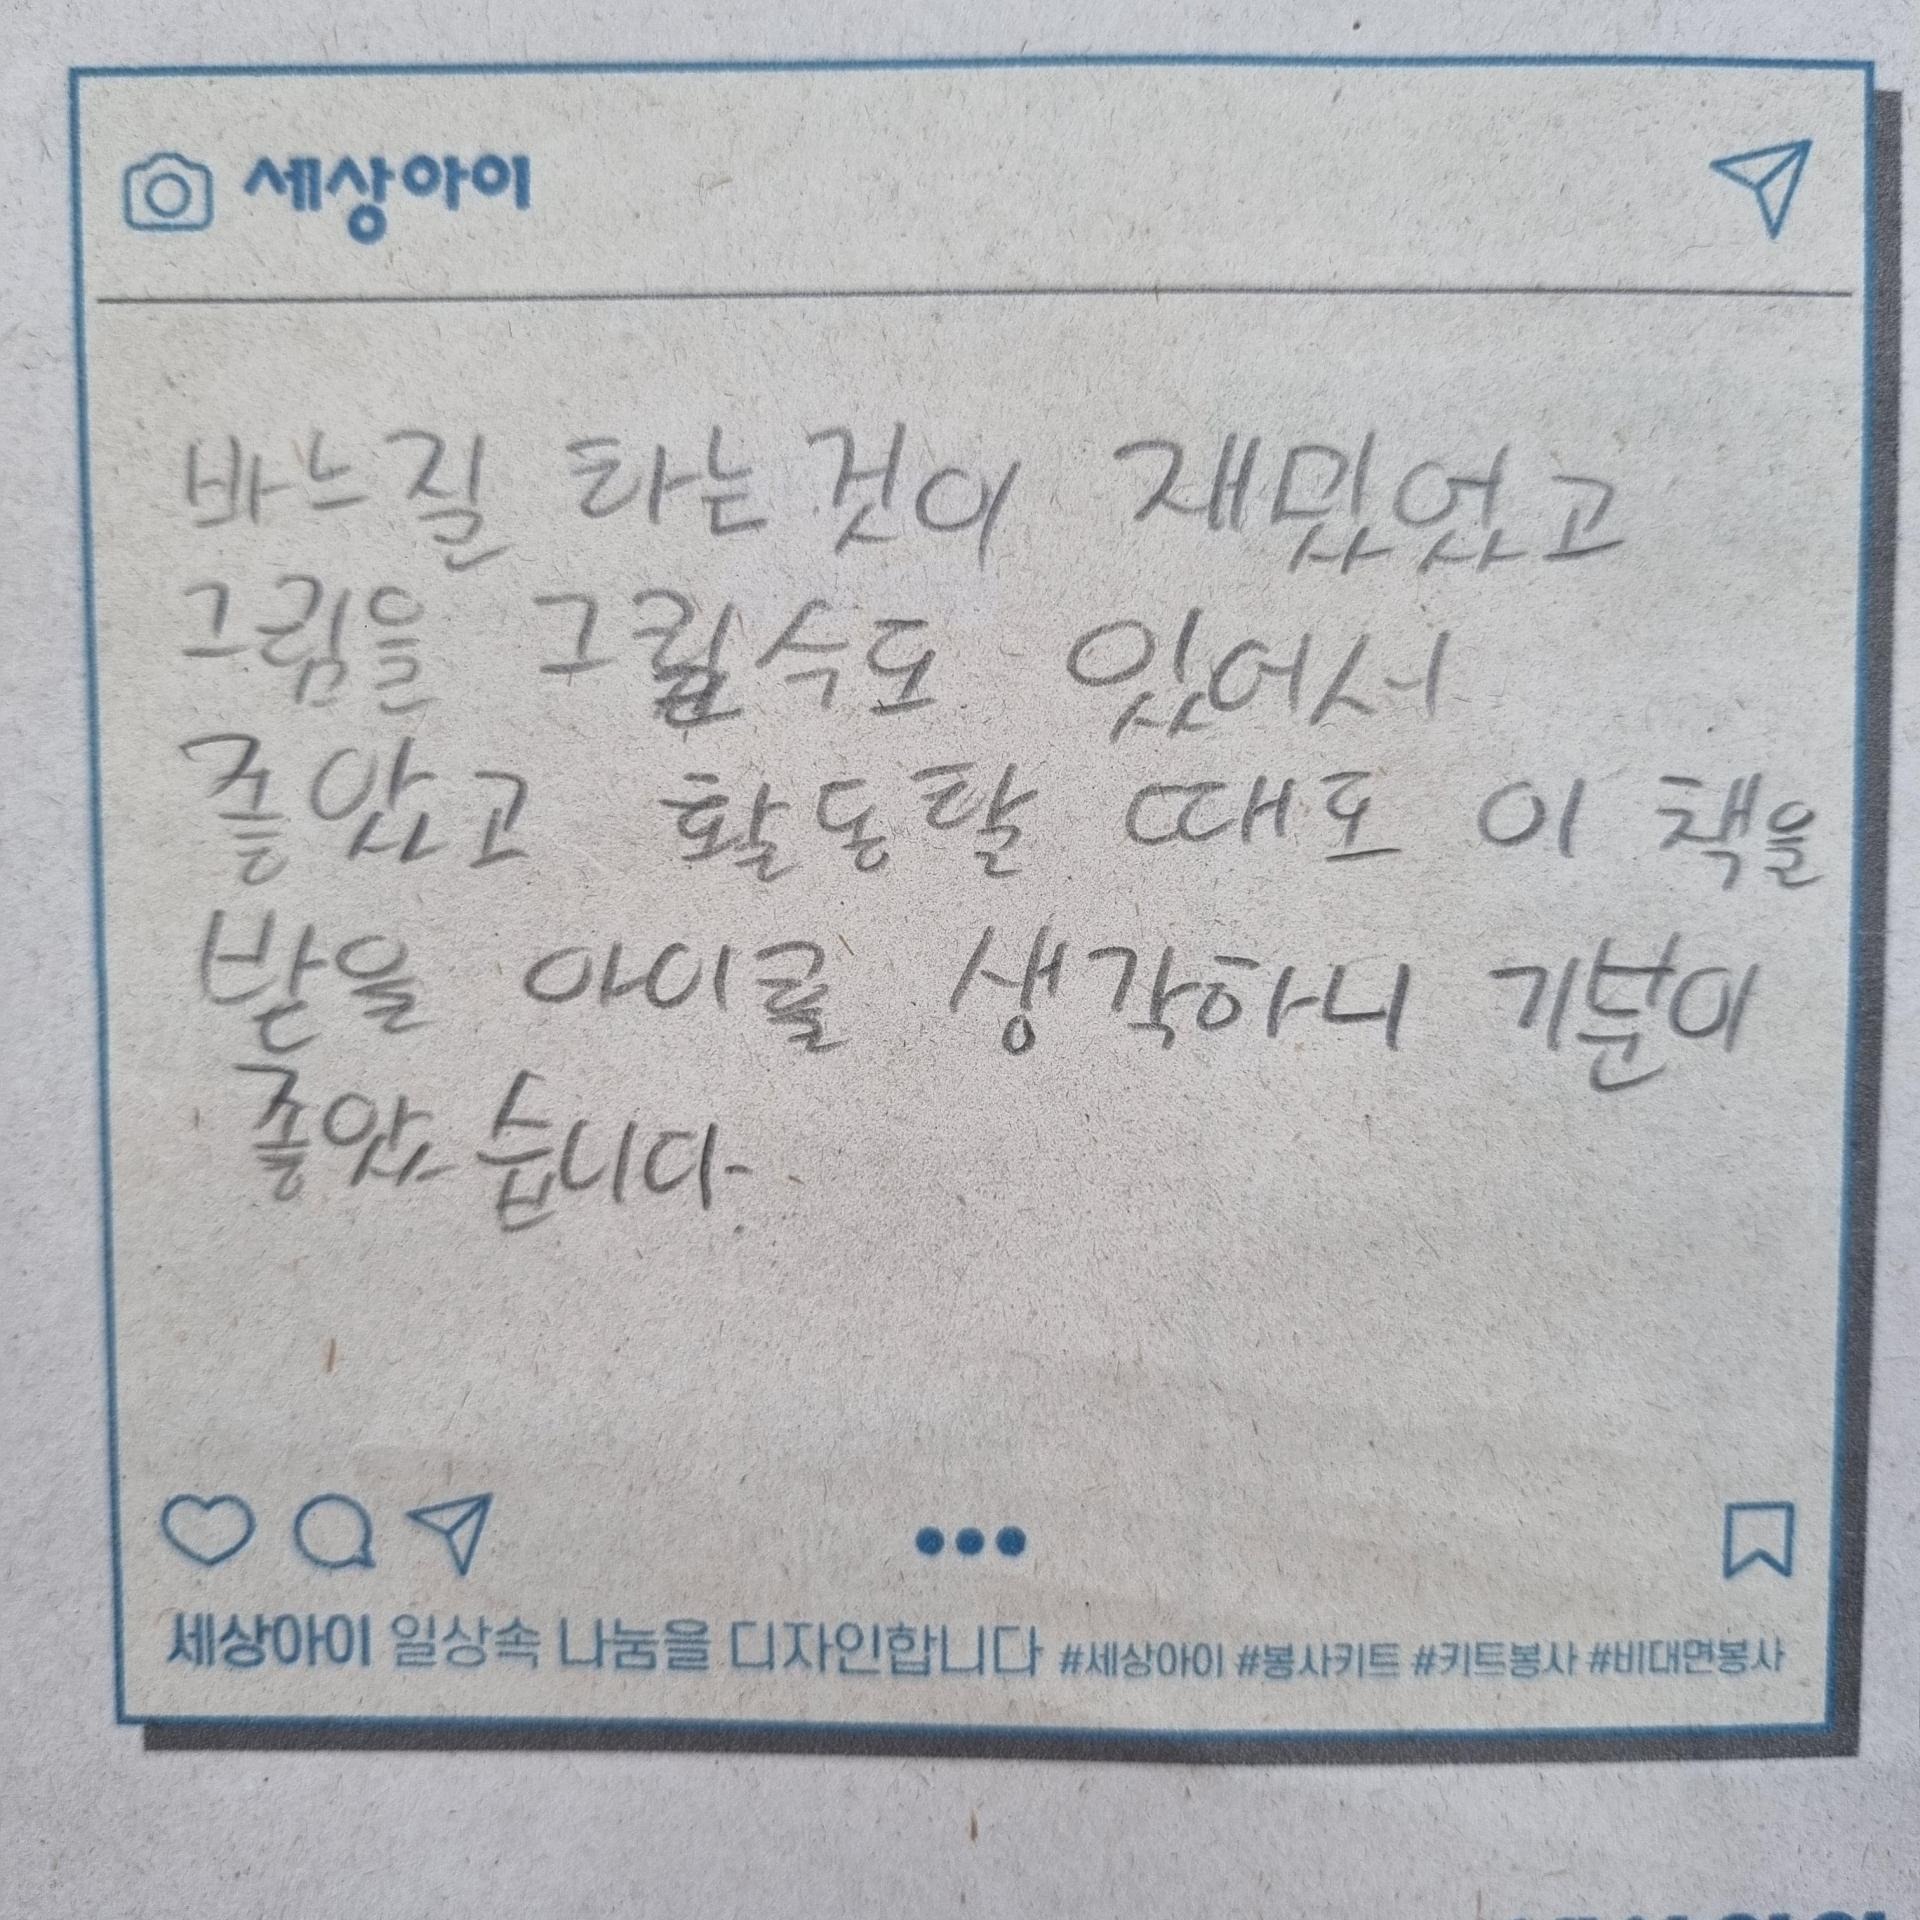 세상아이
바느질 하는 것이 재밌었고
그림을 그릴수도 있어서
좋았고 활동할 때도 이 책을
받을 아이를 생각하니 기분이
좋았습니다.
세상아이 일상속 나눔을 디자인합니다 #세상아이 #봉사키트 #키트봉사 #비대면봉사